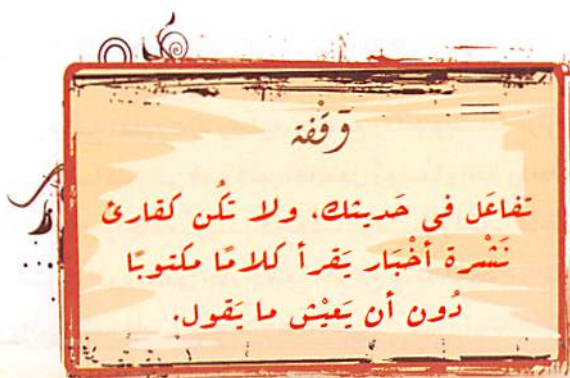 وَقْفة
تفاعَل في حَديثك، ولا تكُن كقارئ
نَشْرة أخْبَار يَقرأ كلامًا مكتوبًا
دُون أن يَعيْش ما يَقول.